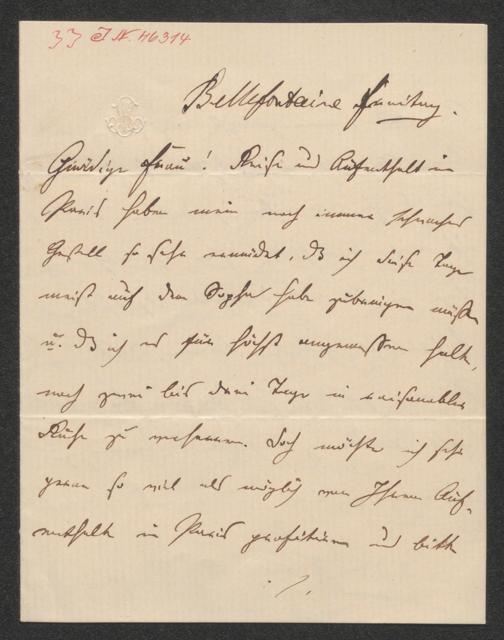 33 J.N. 46314
Bellefontaine Freitag.
Gnädige Frau! Reise und Aufenthalt in
Paris haben mein noch immer schwaches
Gestell so sehr ermüdet, dß ich diese Tage
meist auf dem Sopha habe zubringen müssen
u. dß ich es für höchst angemessen halte,
noch zwei bis drei Tage in raisonabler
Ruhe zu verharren. Doch möchte ich sehr
gerne so viel als möglich von Ihrem Auf-
enthalt in Paris profitiren und bitte
./.